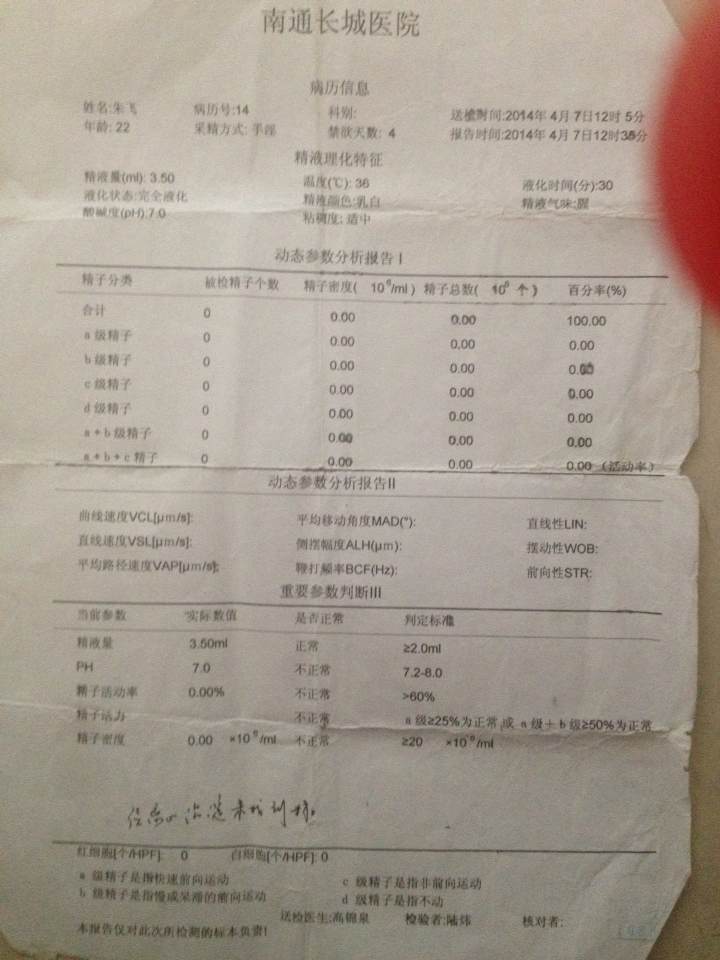 南通长城医院
病历信息
姓名:朱飞 病历号:14 科别: 送检时间:2014年 4月 7日12时 5分
年龄: 22 采精方式: 手淫 禁欲天数: 4 报告时间:2014年 4月 7日12时35分
精液理化特征
精液量(ml): 3.50 温度(℃): 36 液化时间(分):30
液化状态:完全液化 精液颜色:乳白 精液气味:腥
酸碱度(pH):7.0 粘稠度: 适中
动态参数分析报告 I
精子分类 被检精子个数 精子密度( 10⁶/ml ) 精子总数( 10⁶ 个 ) 百分率(%)
合计 0 0.00 0.00 100.00
a 级精子 0 0.00 0.00 0.00
b 级精子 0 0.00 0.00 0.00
c 级精子 0 0.00 0.00 0.00
d 级精子 0 0.00 0.00 0.00
a + b 级精子 0 0.00 0.00 0.00
a + b + c 精子 0 0.00 0.00 0.00 (活动率)
动态参数分析报告II
曲线速度VCL[μm/s]: 平均移动角度MAD(°): 直线性LIN:
直线速度VSL[μm/s]: 侧摆幅度ALH(μm): 摆动性WOB:
平均路径速度VAP[μm/s]: 鞭打频率BCF(Hz): 前向性STR:
重要参数判断III
当前参数 实际数值 是否正常 判定标准
精液量 3.50ml 正常 ≥2.0ml
PH 7.0 不正常 7.2-8.0
精子活动率 0.00% 不正常 >60%
精子活力 不正常 a 级≥25%为正常 或 a 级+ b 级≥50%为正常
精子密度 0.00 ×10⁶/ml 不正常 ≥20 ×10⁶/ml
红细胞[个/HPF]: 0 白细胞[个/HPF]: 0
a 级精子是指快速前向运动 c 级精子是指非前向运动
b 级精子是指慢或呆滞的前向运动 d 级精子是指不动
送检医生:高锦泉 检验者:陆炜 核对者:
本报告仅对此次所检测的标本负责!